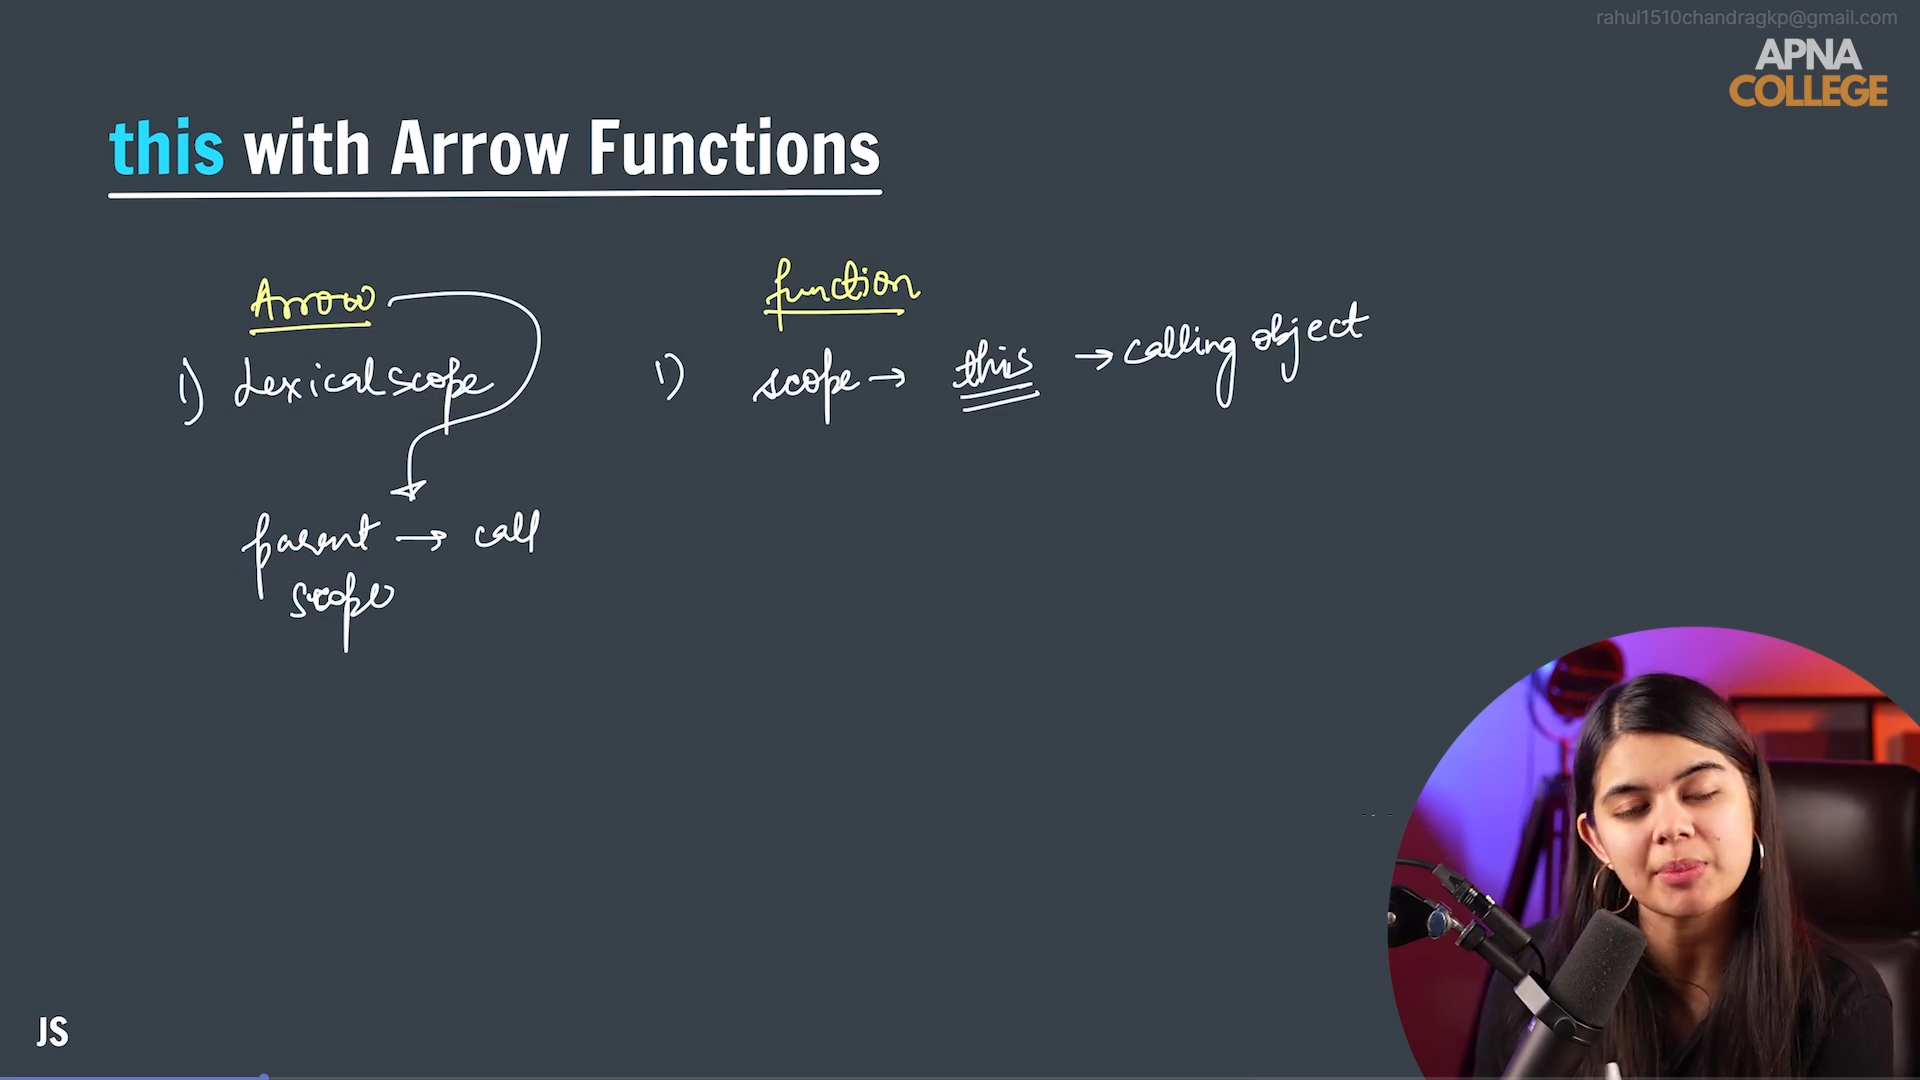 rahul1510chandragkp@gmail.com
APNA
COLLEGE
this with Arrow Functions
Arrow
1) Lexical scope
parent → call
scope
function
1) scope → this → calling object
JS